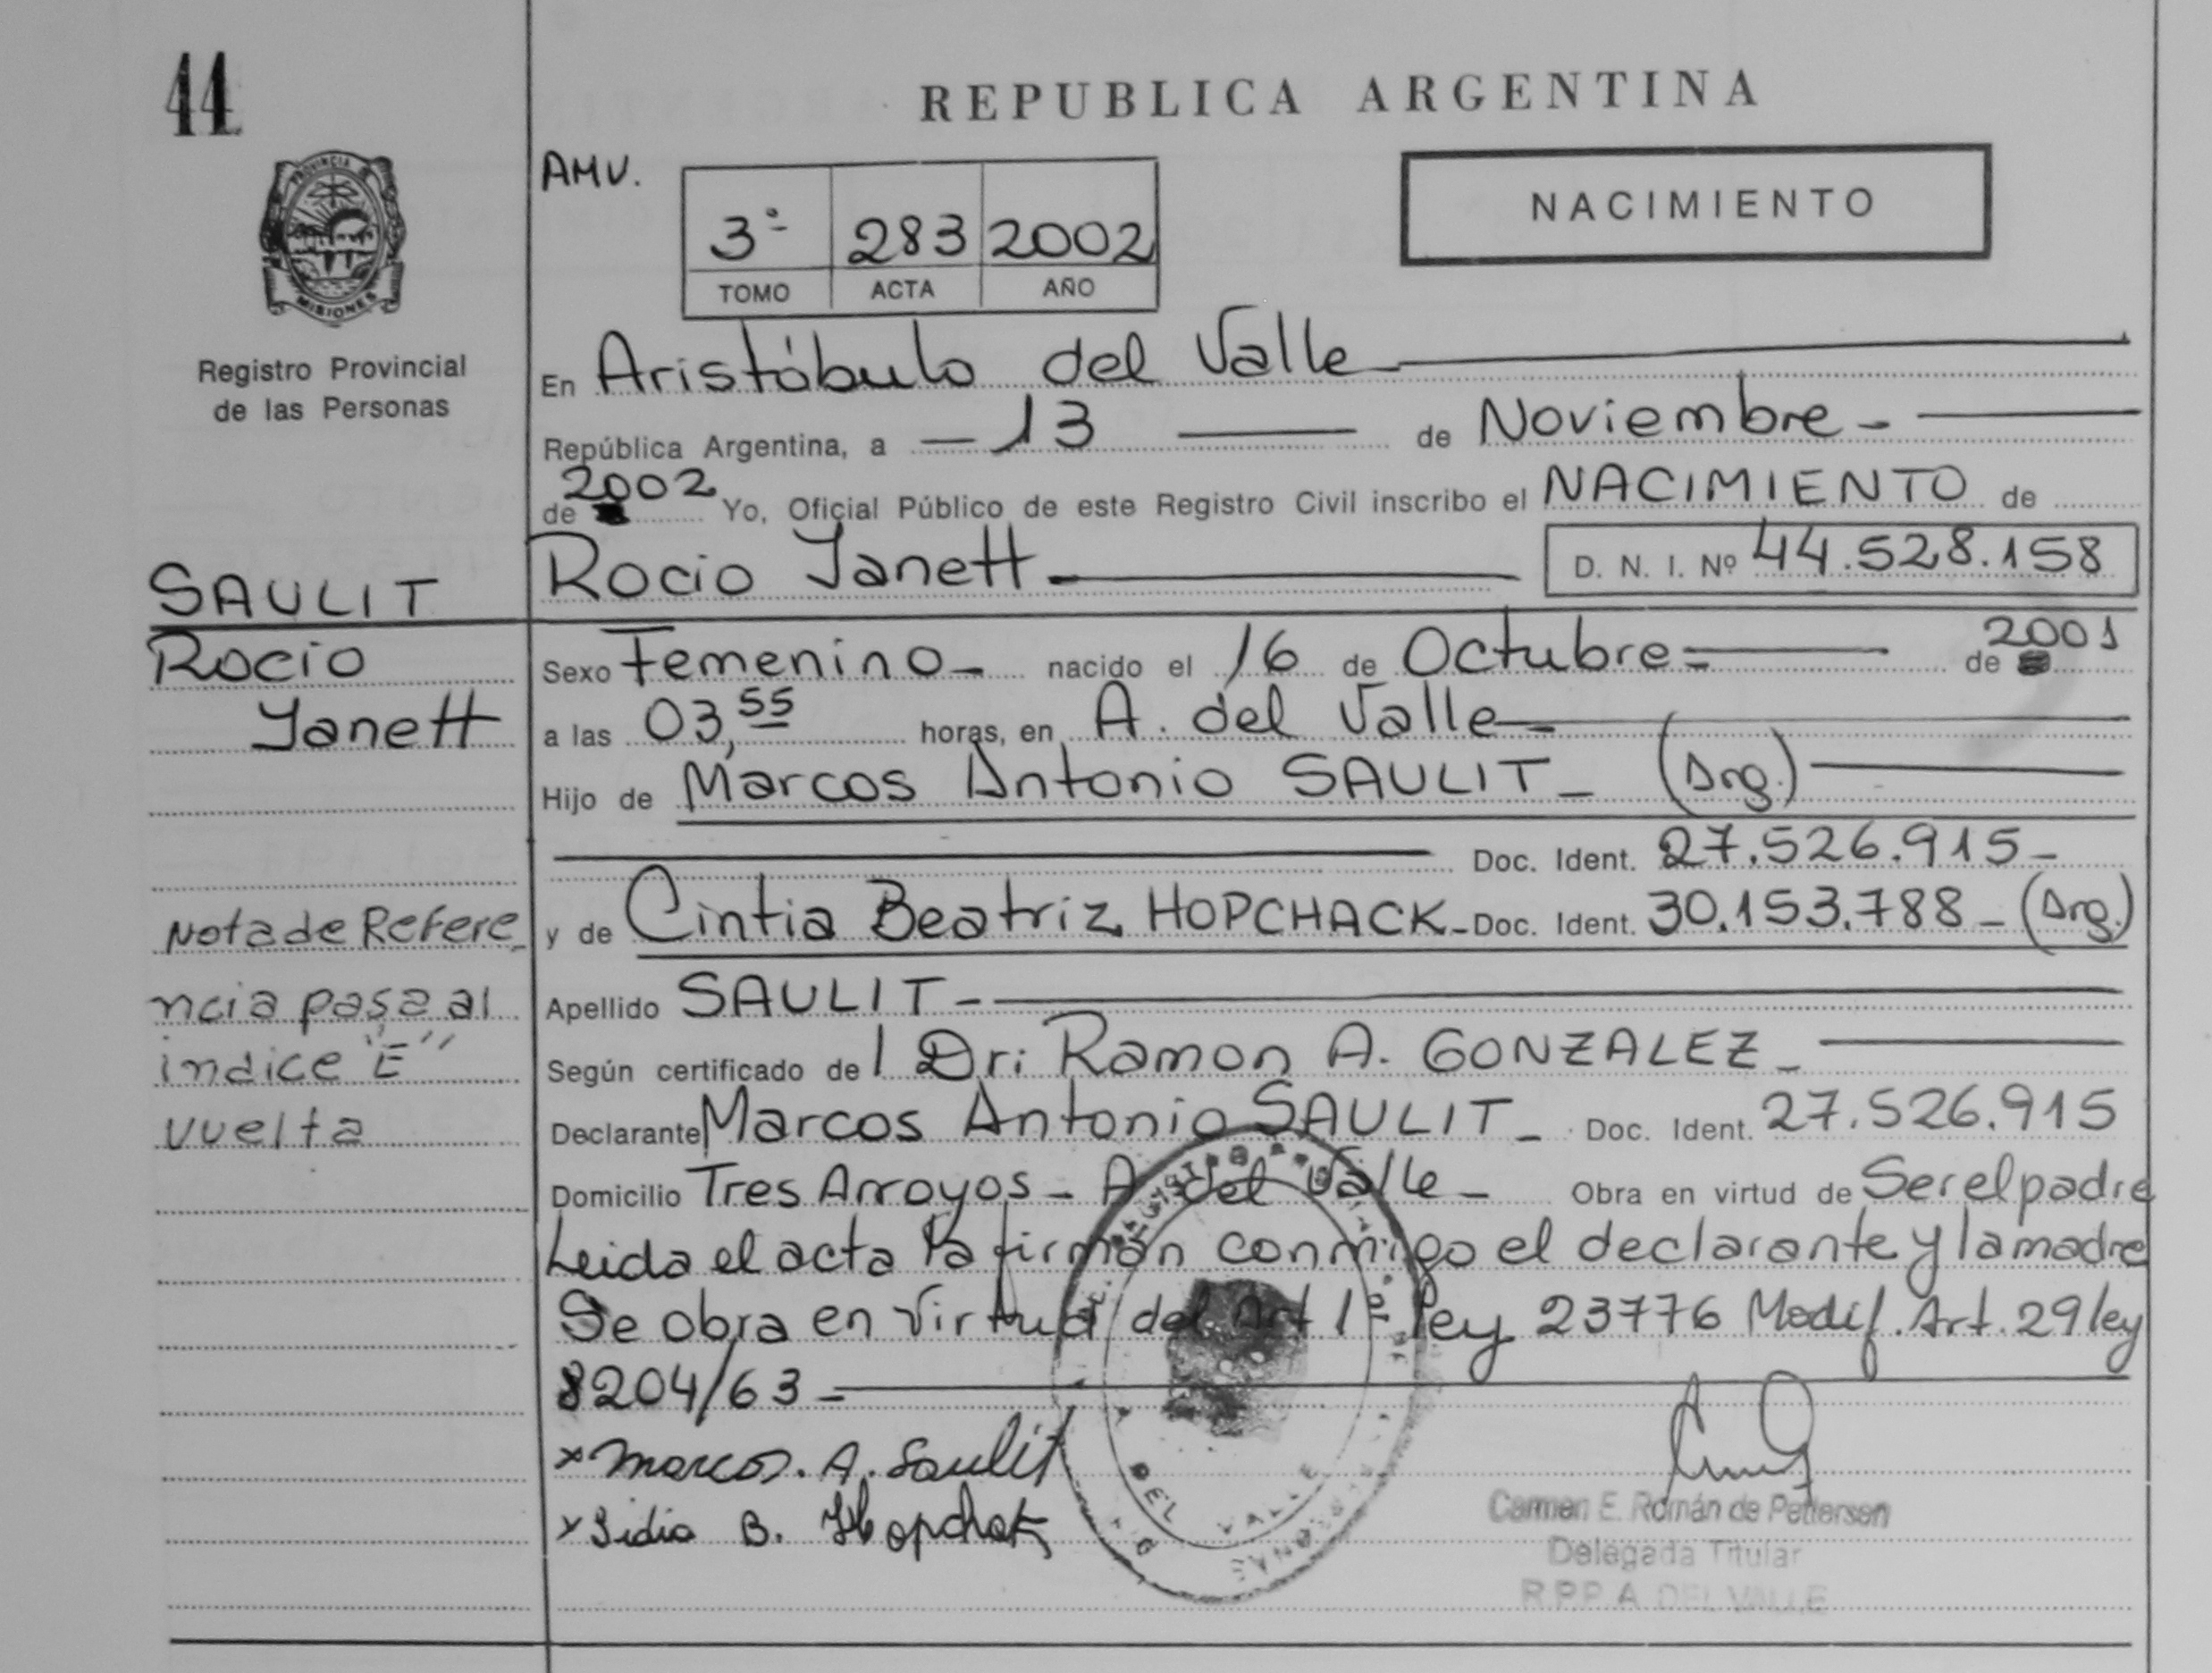 44
REPUBLICA ARGENTINA
PROVINCIA DE
MISIONES
AMV.
3º 283 2002
TOMO ACTA AÑO
NACIMIENTO
Registro Provincial
de las Personas
En Aristóbulo del Valle
República Argentina, a 13 de Noviembre
de 2002 Yo, Oficial Público de este Registro Civil inscribo el NACIMIENTO de
Rocio Yanett D. N. I. Nº 44.528.158
SAULIT
Rocio
Yanett
Sexo Femenino nacido el 16 de Octubre de 2001
a las 03,55 horas, en A. del Valle
Hijo de Marcos Antonio SAULIT (Arg.)
Doc. Ident. 27.526.915
y de Cintia Beatriz HOPCHACK Doc. Ident. 30.153.788 (Arg.)
Nota de Refere
ncia pasa al
indice "E"
vuelta
Apellido SAULIT
Según certificado de l Dr: Ramon A. GONZALEZ
Declarante Marcos Antonio SAULIT Doc. Ident. 27.526.915
Domicilio Tres Arroyos - A. del Valle Obra en virtud de Ser el padre
Leida el acta la firman conmigo el declarante y la madre
Se obra en Virtud del Art 1º ley 23776 Modif. Art. 29 ley
8204/63
x Marcos. A. Saulit
x B. Hopchak
DEL VALLE
Carmen E. Román de Pettersen
Delegada Titular
R.P.P. A. DEL VALLE